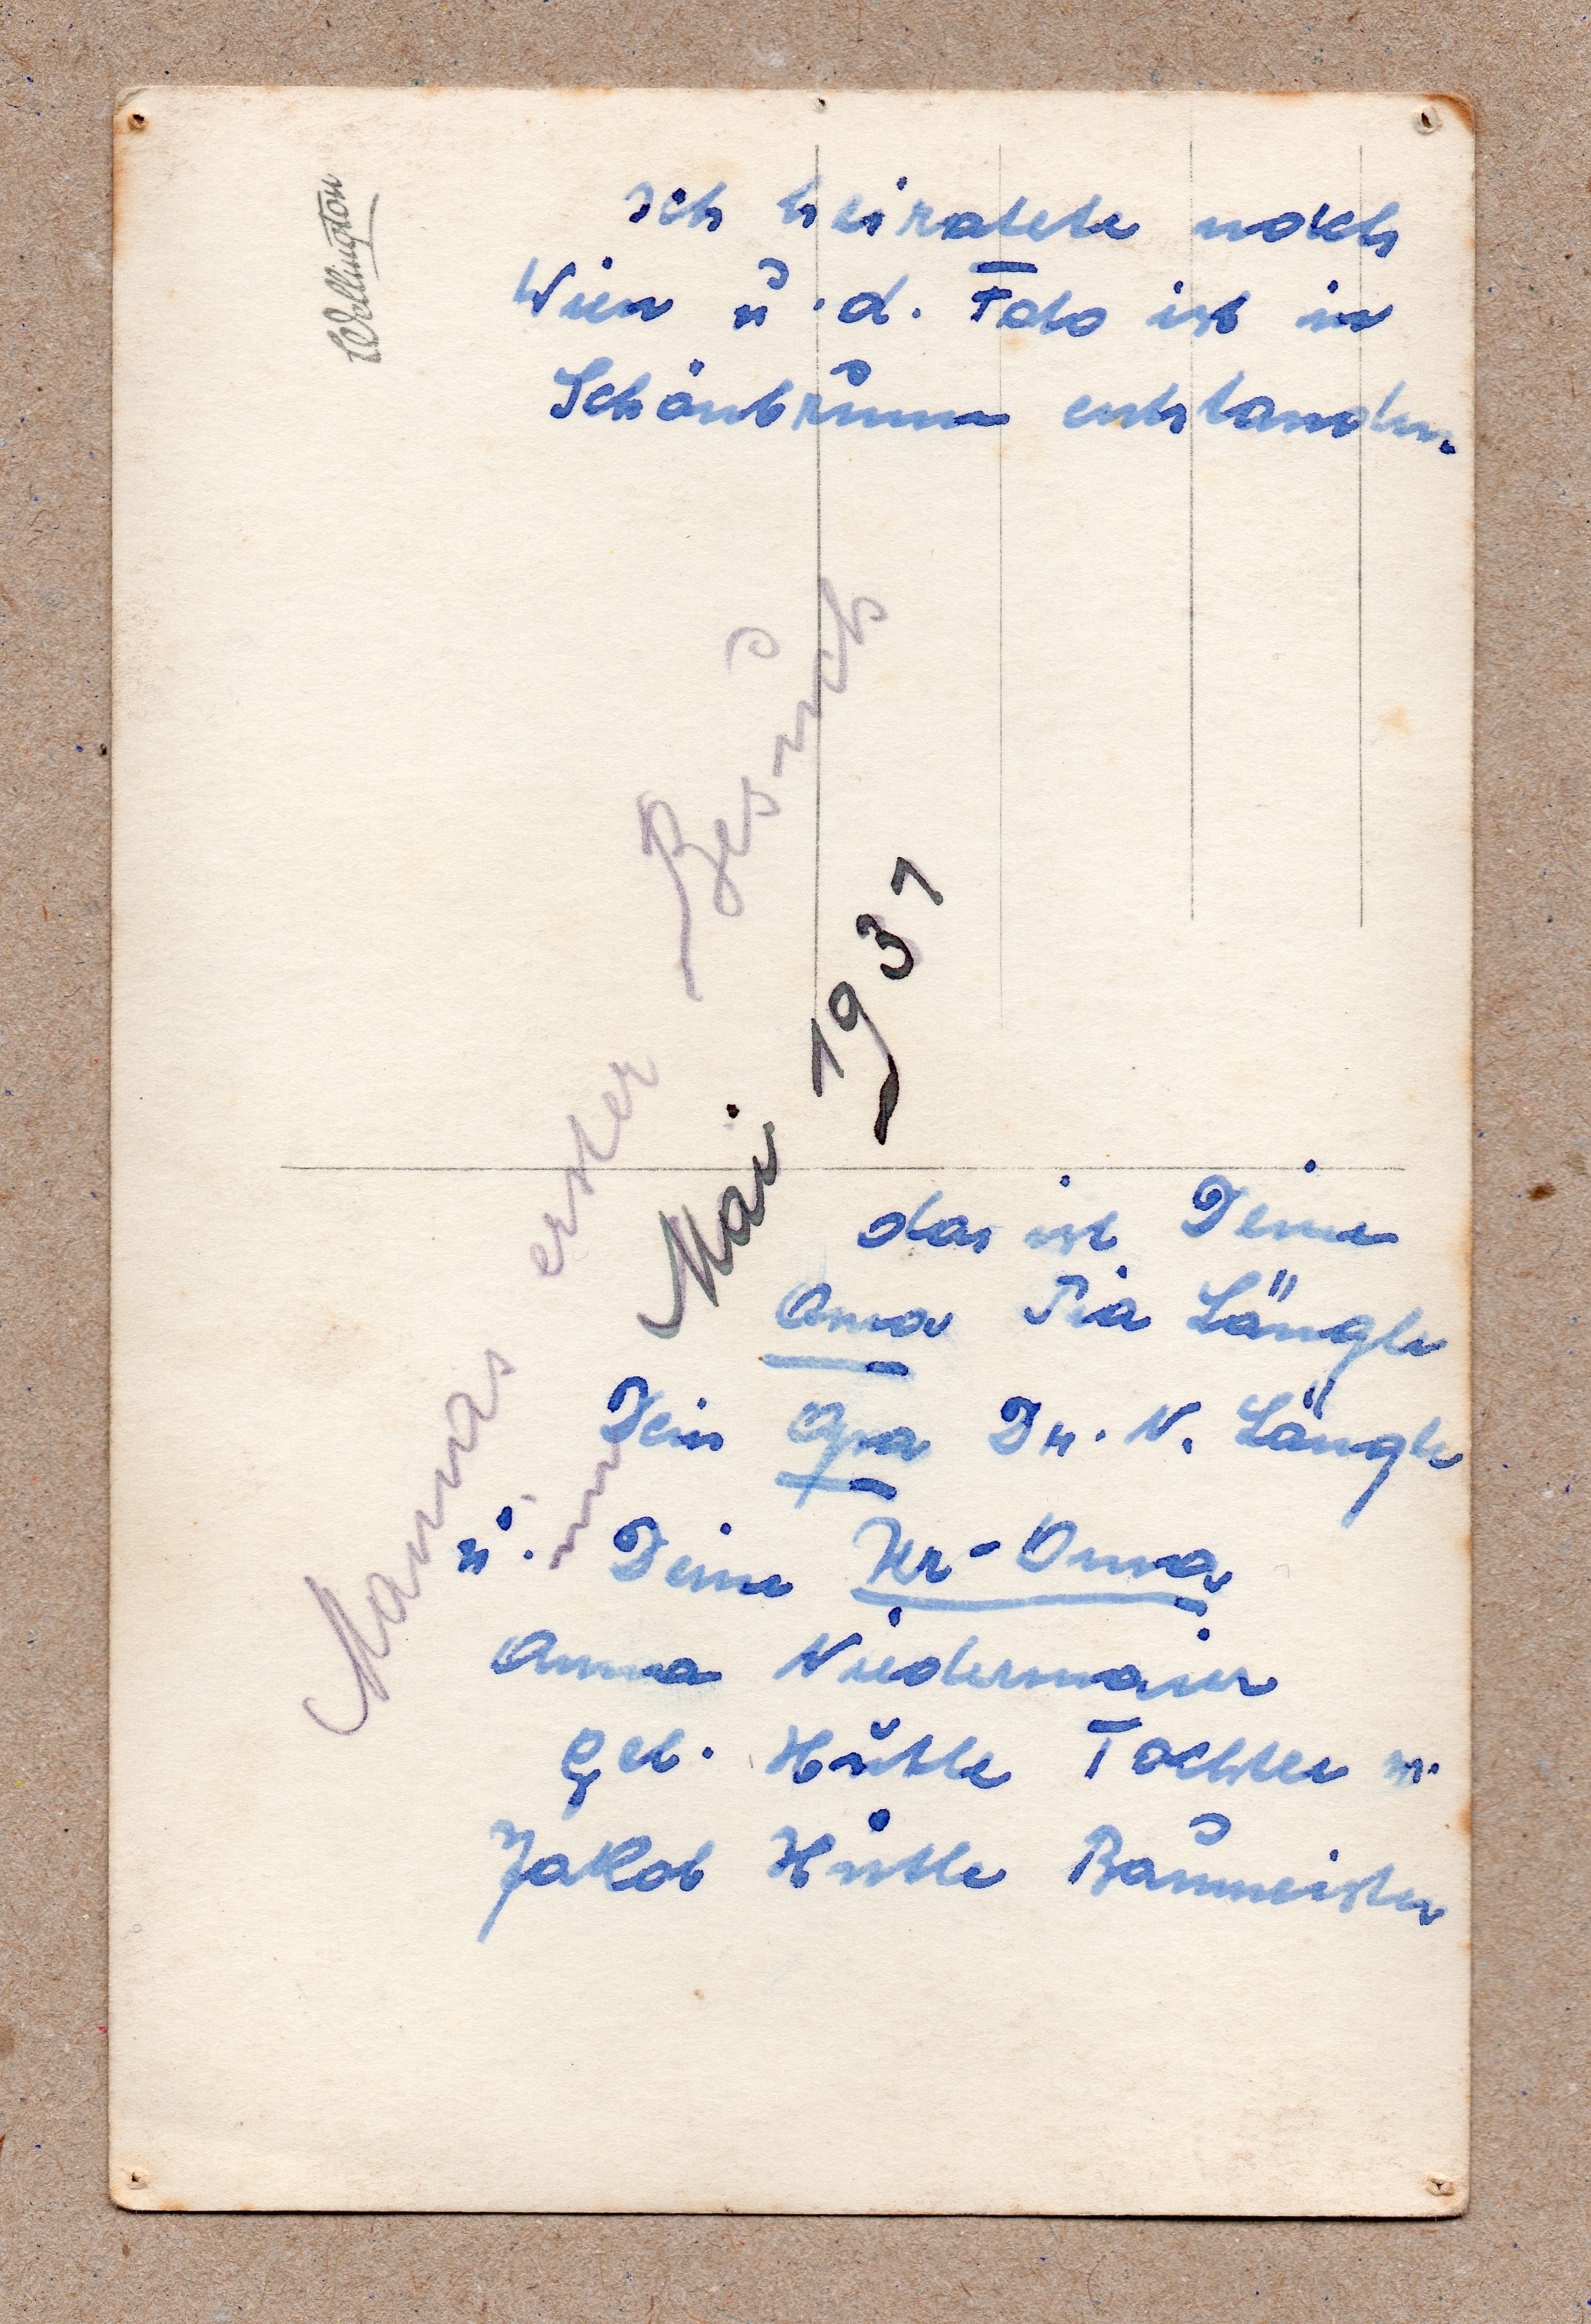 Wellington
Ich heiratete nach
Wien u. d. Foto ist in
Schönbrunn entstanden.
Mamas erster Besuch
im Mai 1931
das ist Deine
Oma Pia Längle
Dein Opa Dr. N. Längle
u. Deine Ur-Oma
Anna Niedermaier
geb. Hütle Tochter v.
Jakob Hütle Baumeister